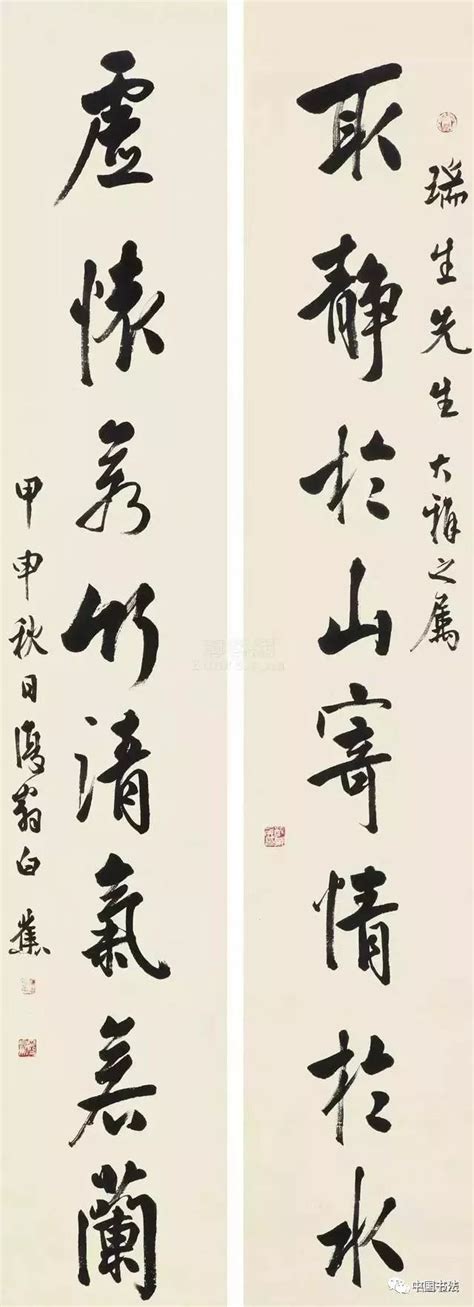 瑞生先生大雅之属
取静於山寄情於水
虚懷若竹清氣若蘭
甲申秋日復翁白蕉
中国书法